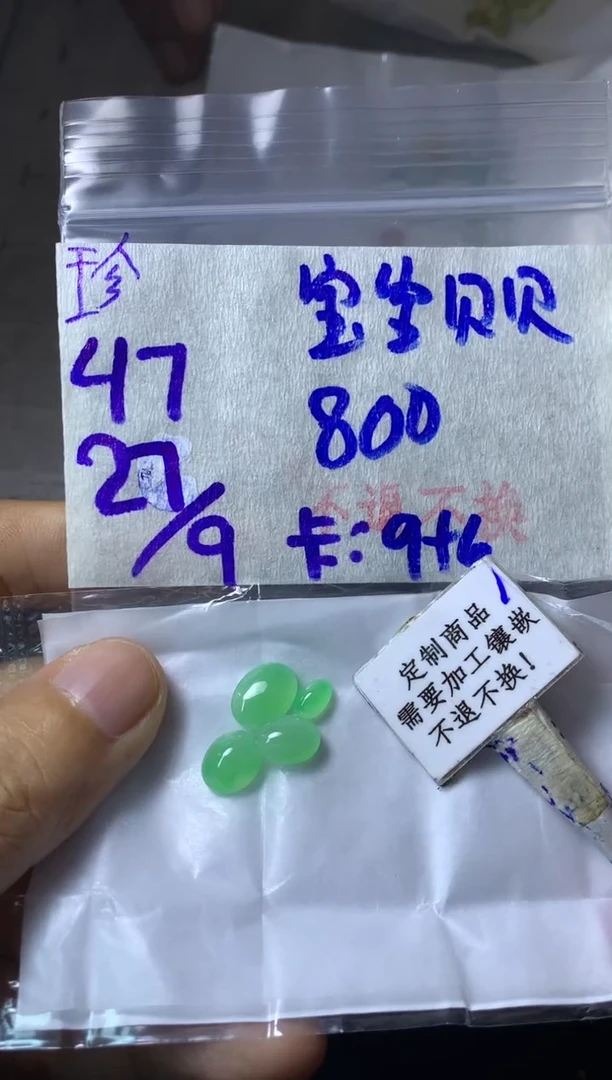 珍
47
27/9
宝宝贝贝
800
不退不换
卡:9+6
定制商品
需要加工镶嵌
不退不换!